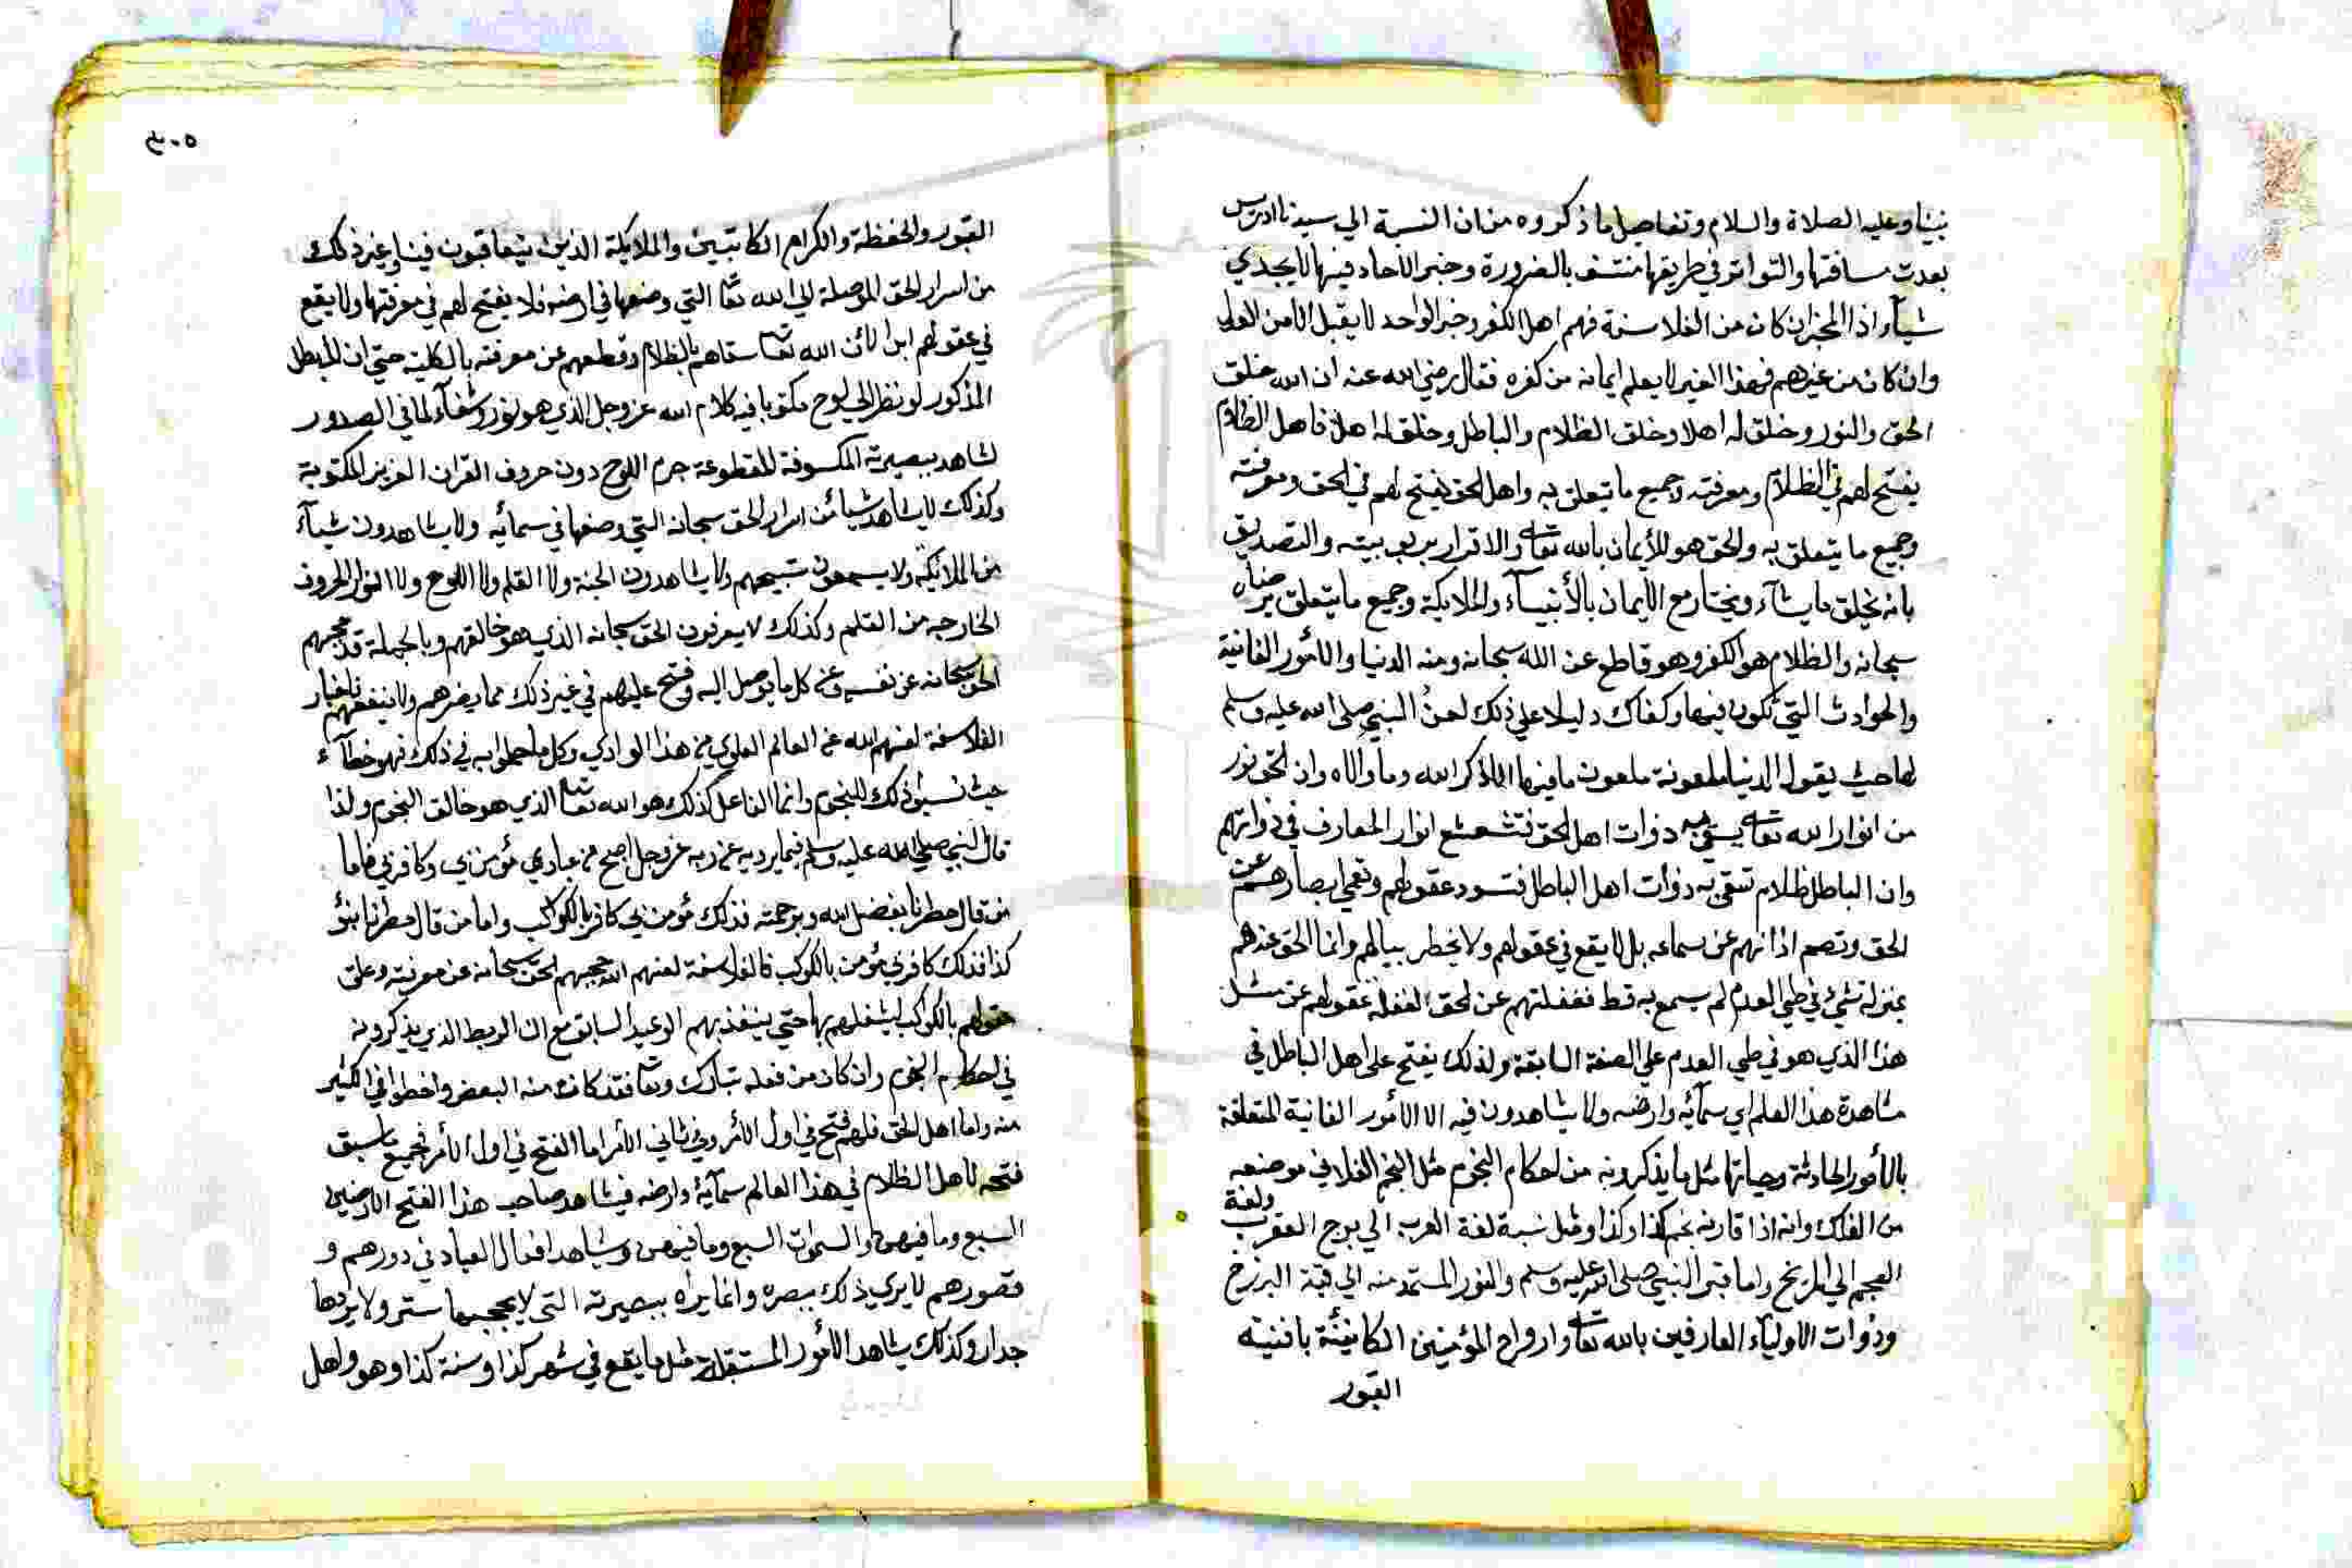 نبينا وعليه الصلاة والسلام وتفاصيل ما ذكروه من ان النسبة الي سيدنا ادريس
بعدت مسافتها والتواتر في طريقها منتف بالضرورة وخبر الاحاد فيها لا يجدي
شيأ اذ المخبر ان كان من الفلاسفة فهم اهل الكفر وخبر الواحد لا يقبل الا من العدل
وان كان من غيرهم فهذا الغير لا يعلم ايمانه من كفره فقال رضي الله عنه ان الله خلق
الحق والنور وخلق له اهلا وخلق الظلام والباطل وخلق له اهلا فاهل الظلام
يفتح لهم في الظلام ومعرفته وجميع ما يتعلق به واهل الحق يفتح لهم في الحق ومعرفته
وجميع ما يتعلق به والحق هو الأيمان بالله تعالى والاقرار بربوبيته والتصديق
بانه يخلق ما يشآء ويختار مع الأيمان بالأنبيآء والملايكة وجميع ما يتعلق برضاه
سبحانه والظلام هو الكفر وهو قاطع عن الله سبحانه ومنه الدنيا والأمور الفانية
والحوادث التي تكون فيها وكفاك دليلا علي ذلك لعن النبي صلى الله عليه وسلم
لها حيث يقول الدنيا ملعونة ملعون ما فيها الا ذكر الله وما والاه وان الحق نور
من انوار الله تعالى يسقي به ذوات اهل الحق فتشعشع انوار المعارف في ذواتهم
وان الباطل ظلام تسقي به ذوات اهل الباطل فتسود عقولهم وتعمي ابصارهم عن
الحق وتصم اذانهم عن سماعه بل لا يقع في عقولهم ولا يخطر ببالهم وانما الحق عندهم
بمنزلة شيء في طي العدم لم يسمع به قط فغفلتهم عن الحق كغفلة عقولهم عن مثل
هذا الذي هو في طي العدم علي الصفة السابقة ولذلك يفتح على اهل الباطل في
مشاهدة هذا العلم اي سمآئه وارضه ولا يشاهدون فيه الا الأمور الفانية المتعلقة
بالأمور الحادثة وهياتها مثل ما يذكرونه من احكام النجوم مثل النجم الفلاني موضعه
من الفلك وانه اذا قارنه نجم كذا وكذا ومثل نسبة لغة العرب الي برج العقرب ولغة
العجم الي المريخ واما قبر النبي صلى الله عليه وسلم والنور المستمد منه الي قبة البرزخ
وذوات الاوليآء العارفين بالله تعالى وارواح المؤمنين الكائنة بافنية
القبور
٣٠٥
القبور والحفظة والكرام الكاتبين والملايكة الذين يتعاقبون فينا وغير ذلك
من اسرار الحق الموصلة الي الله تعا التي وضعها في ارضه فلا يفتح لهم في معرفتها ولا يقع
في عقولهم ابدا لأن الله تعالى سقاهم بالظلام وقطعهم عن معرفته بالكلية حتي ان المبطل
المذكور لو نظر الي لوح مكتوبا فيه كلام الله عز وجل الذي هو نور وشفآء لما في الصدور
لشاهد ببصيرته المكسوفة المقطوعة جرم اللوح دون حروف القران العزيز المكتوبة
وكذلك لا يشاهد شيأ من اسرار الحق سبحانه التي وضعها في سمائه ولا يشاهدون شيآء
من الملائكة ولا يسمعون تسبيحهم ولا يشاهدون الجنة ولا القلم ولا اللوح ولا انوار الحروف
الخارجه من القلم وكذلك لا يعرفون الحق سبحانه الذي هو خالقهم وبالجملة قد حجبهم
الحق سبحانه عن نفسه وعن كل ما يوصل اليه وفتح عليهم في غير ذلك مما يضرهم ولا ينفعهم فاخبار
الفلاسفة لعنهم الله عن العالم العلوي من هذا الوادي وكل ما حكموا به في ذلك فهو خطآء
حيث نسبوا ذلك للنجوم وانما الفاعل كذلك هو الله تعالى الذي هو خالق النجوم ولذا
قال النبي صلى الله عليه وسلم فيما يرويه عن ربه عز وجل اصبح من عبادي مؤمن بي وكافر بي فاما
من قال مطرنا بفضل الله وبرحمته فذلك مؤمن بي كافر بالكوكب واما من قال مطرنا بنؤ
كذا فذلك كافر بي مؤمن بالكوكب فالفلاسفة لعنهم الله حجبهم الحق سبحانه عن معرفته وعلق
عقولهم بالكوكب ليشغلهم بها حتي ينفذ بهم الوعيد السابق مع ان الربط الذي يذكرونه
في احكام النجوم وان كان من فعله تبارك وتعا فقد كان منه البعض واخطوا في الكثير
منه واما اهل الحق فلهم فتح في اول الأمر وفي ثاني الأمر اما الفتح في اول الأمر فجميع ما سبق
فتحه لاهل الظلام في هذا العالم سمآئه وارضه فيشاهد صاحب هذا الفتح الارضين
السبع وما فيهن والسموات السبع وما فيهن ويشاهد افعال العباد في دورهم و
قصورهم لا يري ذلك ببصره وانما يراه ببصيرته التي لا يحجبها ستر ولا يردها
جدار وكذلك يشاهد الأمور المستقبلة مثل ما يقع في شهر كذا وسنة كذا وهو واهل